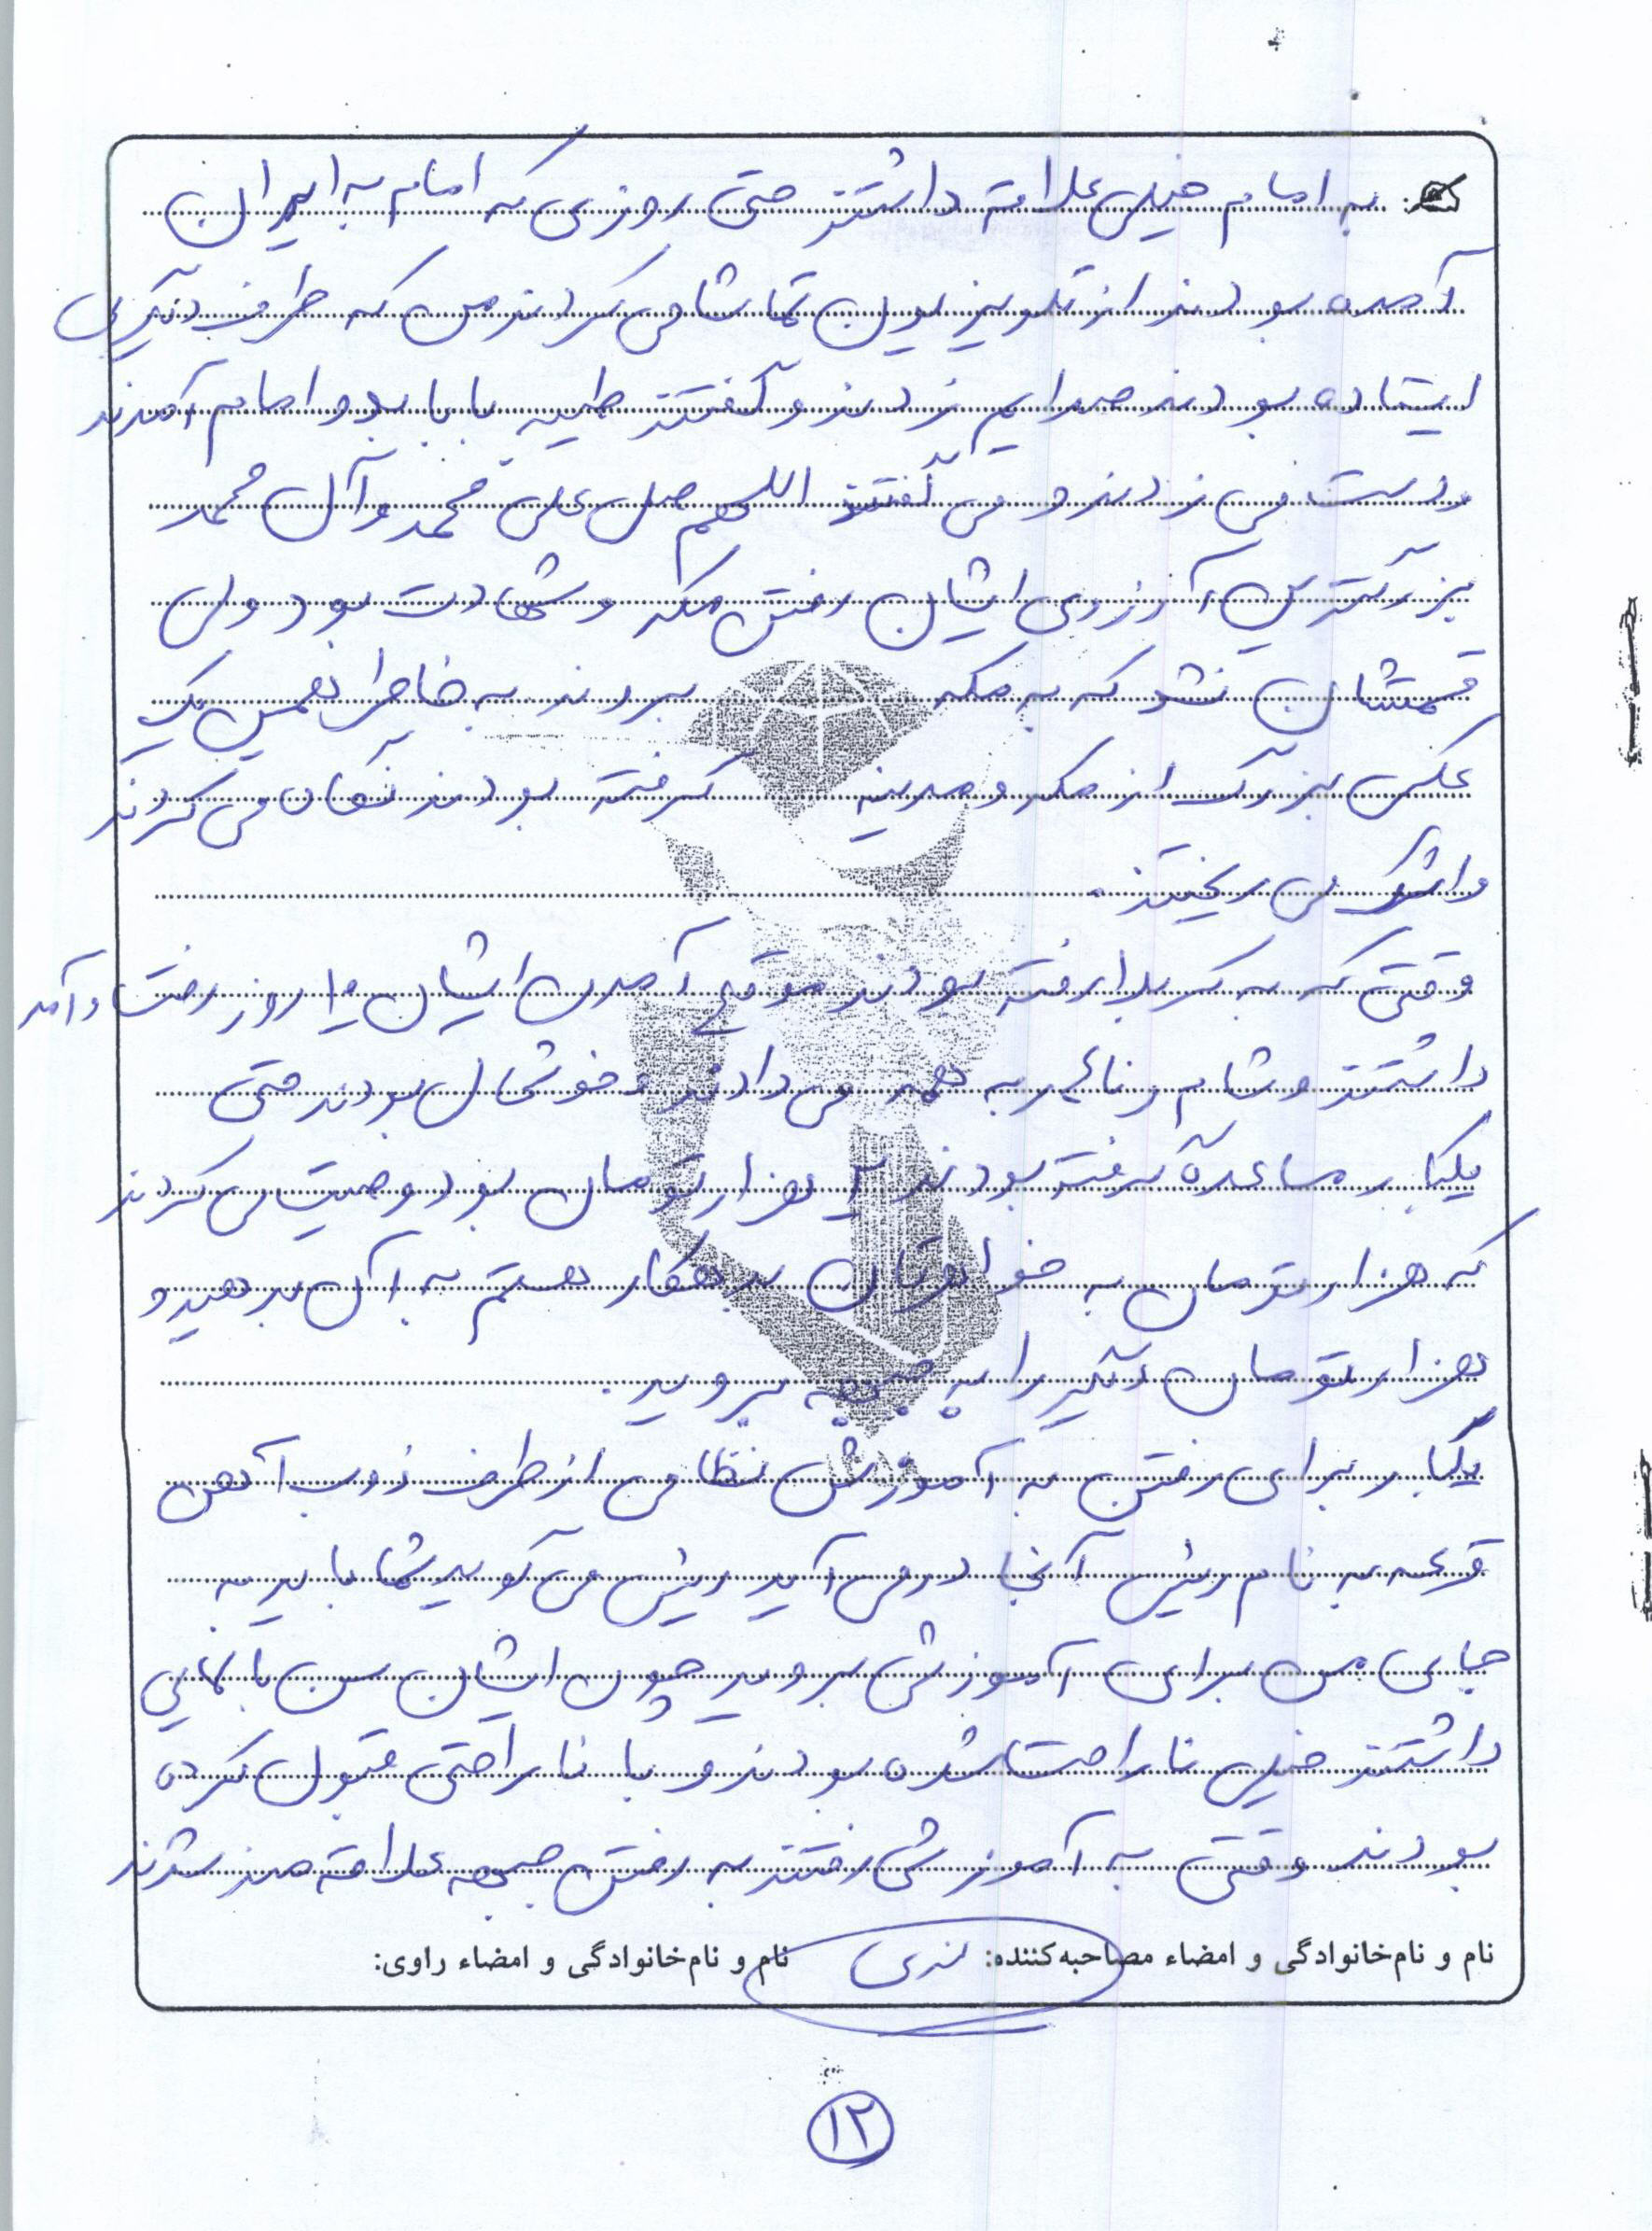 به امام خیلی علاقه داشتند حتی روزی که امام به ایران
آمده بودند از تلویزیون تماشا می کردند من که طرف دیگری
ایستاده بودند صدایم زدند و گفتند طیبه بابا بدو امام آمدند
و دست می زدند و می گفتند اللهم صل علی محمد و آل محمد
بزرگترین آرزوی ایشان رفتن مکه و شهادت بود ولی
قسمتشان نشد که به مکه بروند به خاطر همین یک
عکس بزرگ از مکه و مدینه گرفته بودند نگاه می کردند
و اشک می ریختند.
وقتی که به کربلا رفته بودند موقع آمدن ایشان ۱۰ روز رفت و آمد
داشتند و شام و ناهار به همه می دادند و خوشحال بودند حتی
یکبار مساعده گرفته بودند ۲ هزار تومان بود وصیت می کردند
که هزار تومان به خواهرتان بدهکار هستم به آن بدهید و
هزار تومان دیگر را به جبهه بروید.
یکبار برای رفتن به آموزش نظامی از طرف ذوب آهن
قرعه به نام رئیس آنجا در می آید رئیس می گوید شما باید به
جای من برای آموزش بروید چون ایشان سن بالایی
داشتند خیلی ناراحت شده بودند و با ناراحتی قبول کرده
بودند وقتی به آموزش رفتند به رفتن جبهه علاقه مند شدند
نام و نام‌خانوادگی و امضاء مصاحبه‌کننده: نام و نام‌خانوادگی و امضاء راوی:
۱۲